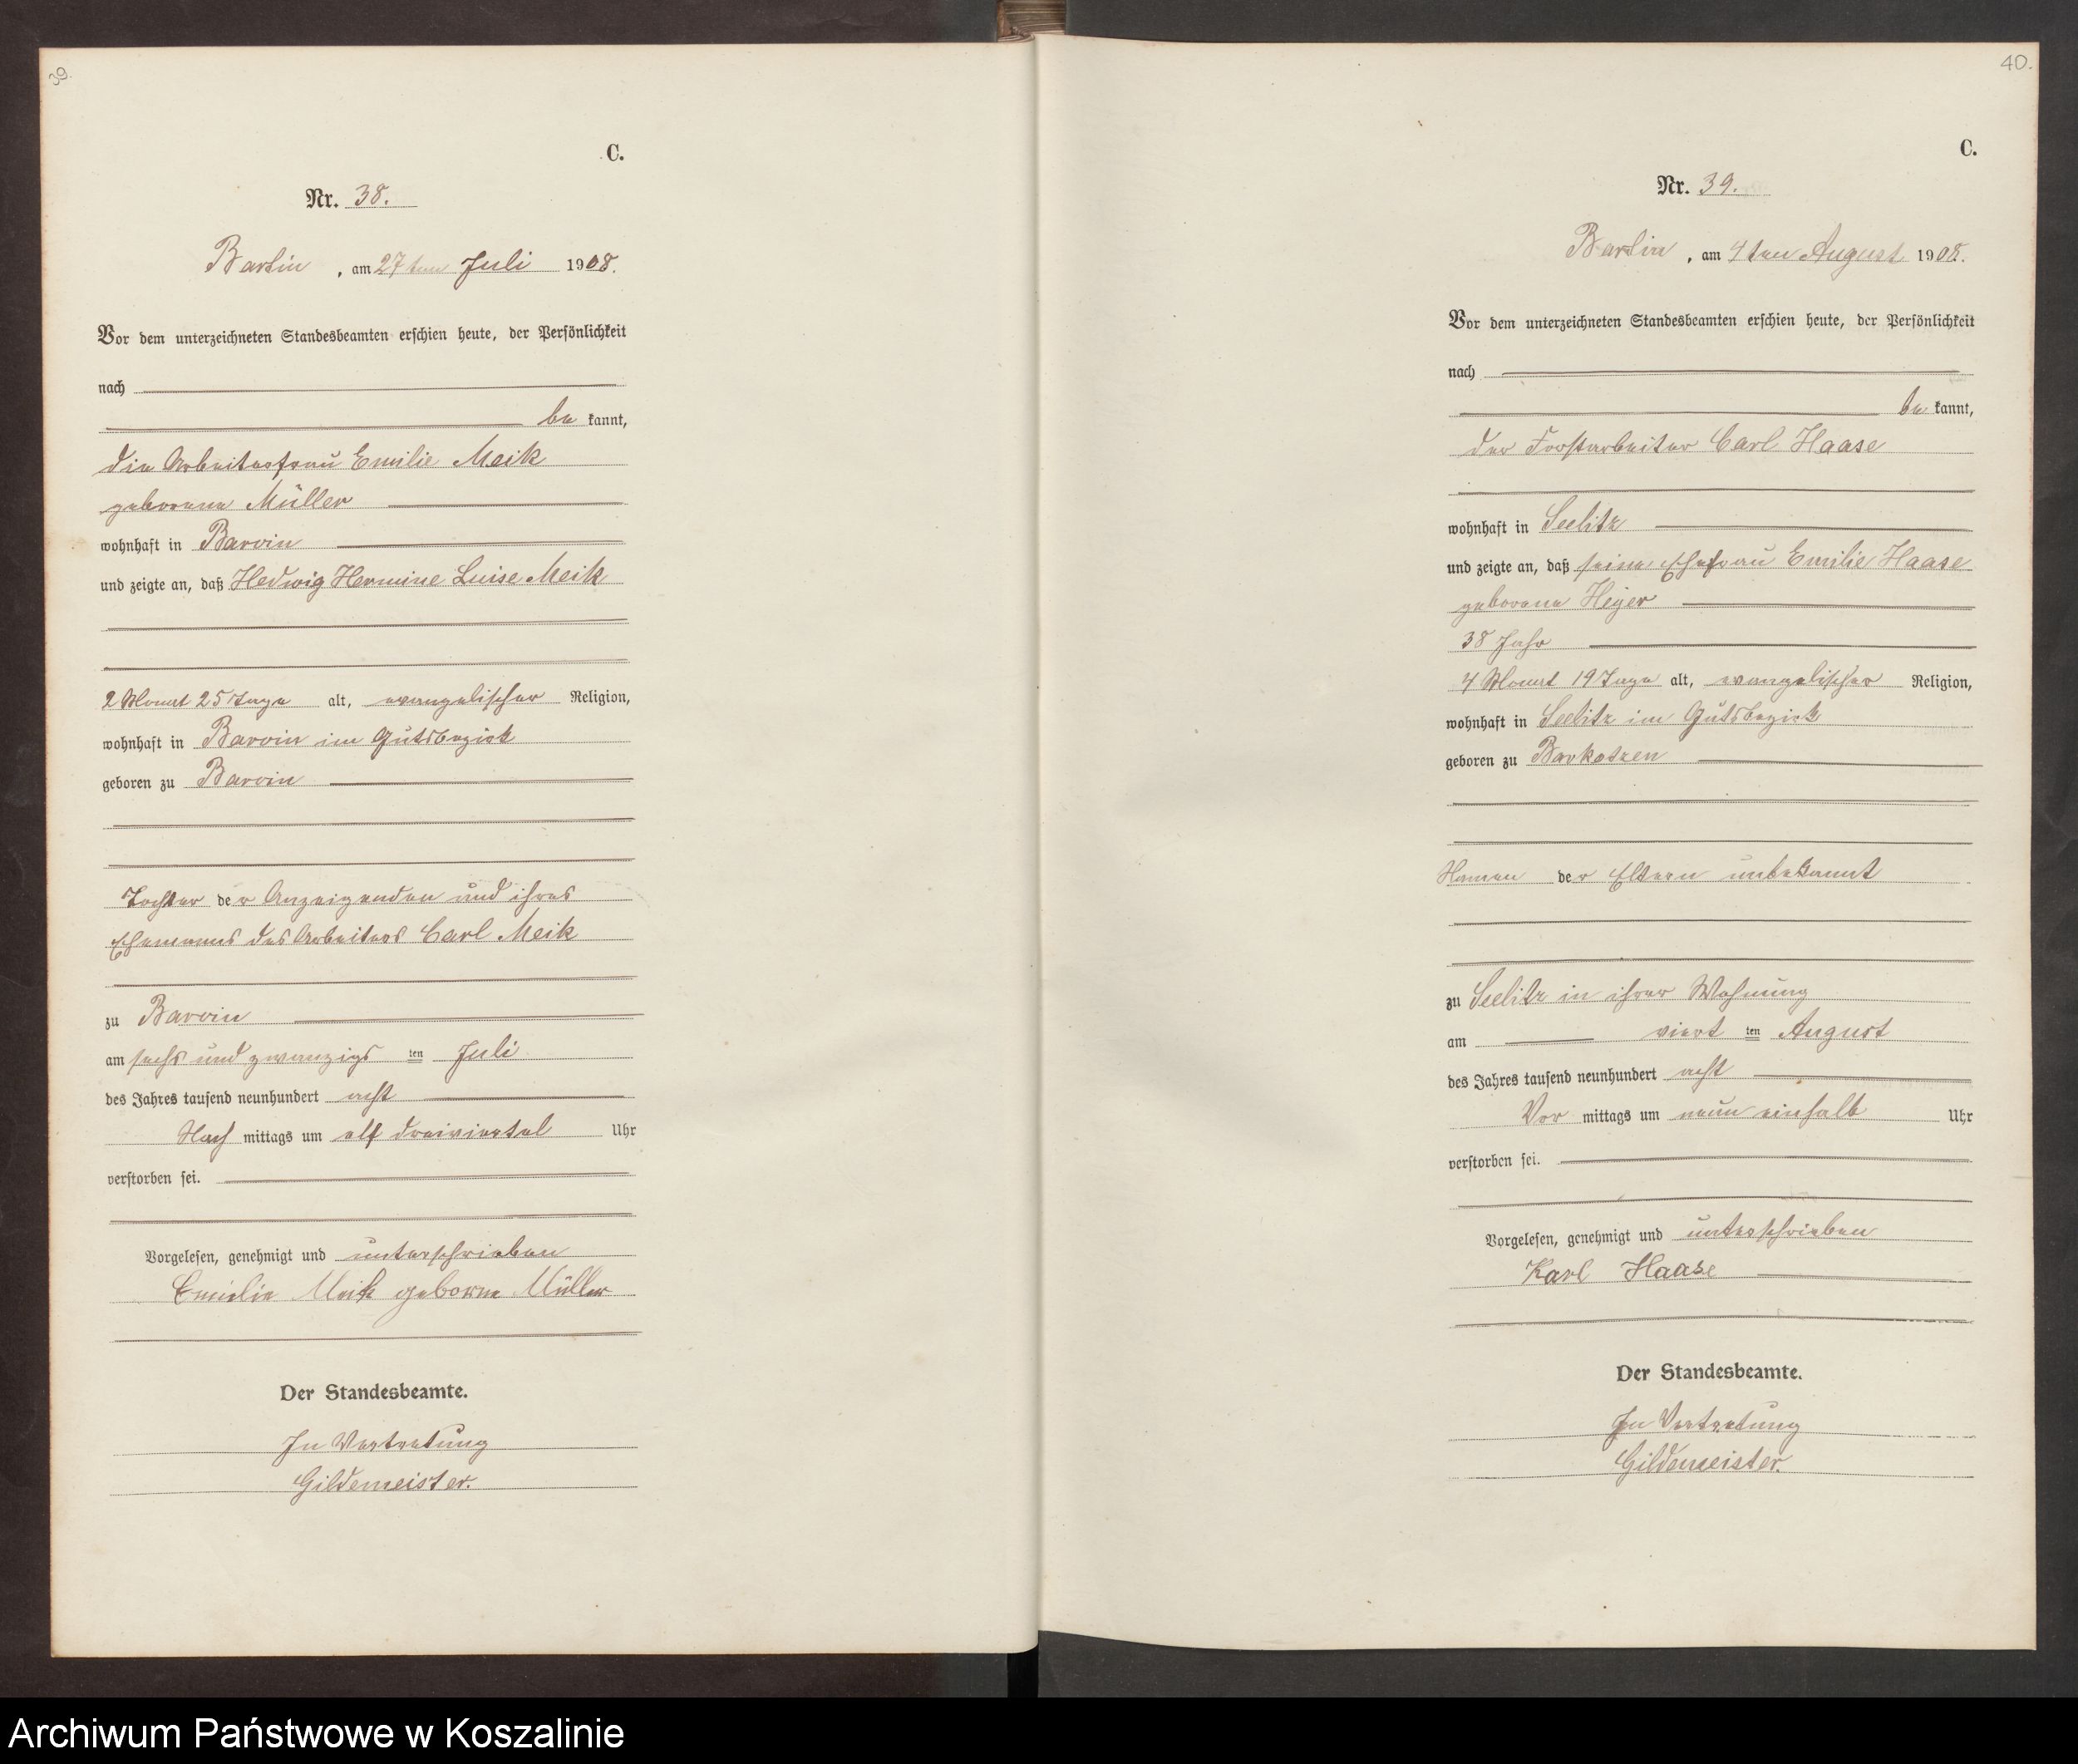 39.
C.
Nr. 38.
Bartin, am 27ten Juli 1908.
Vor dem unterzeichneten Standesbeamten erschien heute, der Persönlichkeit
nach
be kannt,
die Arbeiterfrau Emilie Meik
geborene Müller
wohnhaft in Barvin
und zeigte an, daß Hedwig Hermine Luise Meik
2 Monat 25 Tage alt, evangelischer Religion,
wohnhaft in Barvin im Gutsbezirk
geboren zu Barvin
Tochter der Anzeigenden und ihres
Ehemanns des Arbeiters Carl Meik
zu Barvin
am sechs und zwanzigs ten Juli
des Jahres tausend neunhundert acht
Nach mittags um elf dreiviertel Uhr
verstorben sei.
Vorgelesen, genehmigt und unterschrieben
Emilie Meik geborne Müller
Der Standesbeamte.
In Vertretung
Gildemeister.
40.
C.
Nr. 39.
Bartin, am 4ten August 1908.
Vor dem unterzeichneten Standesbeamten erschien heute, der Persönlichkeit
nach
be kannt,
der Forstarbeiter Carl Haase
wohnhaft in Seelitz
und zeigte an, daß seine Ehefrau Emilie Haase
geborene Heyer
38 Jahr
4 Monat 19 Tage alt, evangelischer Religion,
wohnhaft in Seelitz im Gutsbezirk
geboren zu Barkotzen
Namen der Eltern unbekannt
zu Seelitz in ihrer Wohnung
am viert ten August
des Jahres tausend neunhundert acht
Vor mittags um neun einhalb Uhr
verstorben sei.
Vorgelesen, genehmigt und unterschrieben
Karl Haase
Der Standesbeamte.
In Vertretung
Gildemeister.
Archiwum Państwowe w Koszalinie